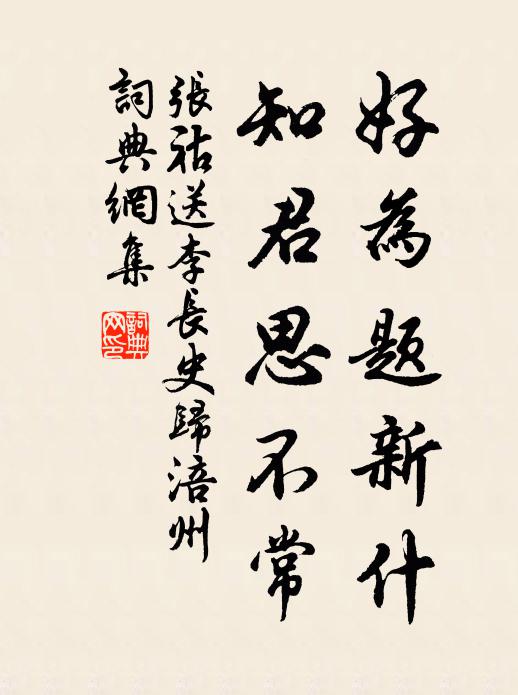 好為題新什
知君思不常
張祜送李長史歸涪州
詞典網集
詞典網印